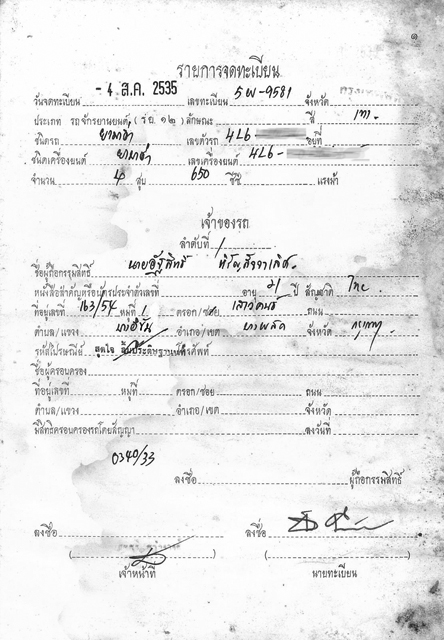 ๑
รายการจดทะเบียน
วันจดทะเบียน - 4 ส.ค. 2535 เลขทะเบียน 5พ-9581 จังหวัด
ประเภท รถจักรยานยนต์ (รย.๑๒) ลักษณะ สี เทา
ชนิดรถ ยามาฮ่า เลขตัวรถ 4L6- อยู่ที่
ชนิดเครื่องยนต์ ยามาฮ่า เลขเครื่องยนต์ 4L6-
จำนวน 4 สูบ 650 ซีซี แรงม้า
เจ้าของรถ
ลำดับที่ 1
ชื่อผู้ถือกรรมสิทธิ์ นาย
หนังสือสำคัญหรือบัตรประจำตัวเลขที่ อายุ 21 ปี สัญชาติ ไทย
ที่อยู่เลขที่ 163/54 หมู่ที่ 1 ตรอก/ซอย ถนน
ตำบล/แขวง บางยี่ขัน อำเภอ/เขต บางพลัด จังหวัด กรุงเทพ
รหัสไปรษณีย์ โทรศัพท์
ชื่อผู้ครอบครอง
ที่อยู่เลขที่ หมู่ที่ ตรอก/ซอย ถนน
ตำบล/แขวง อำเภอ/เขต จังหวัด
มีสิทธิครอบครองรถโดยสัญญา ลงวันที่
0340/33
ลงชื่อ ผู้ถือกรรมสิทธิ์
ลงชื่อ ลงชื่อ
( ) ( )
เจ้าหน้าที่ นายทะเบียน